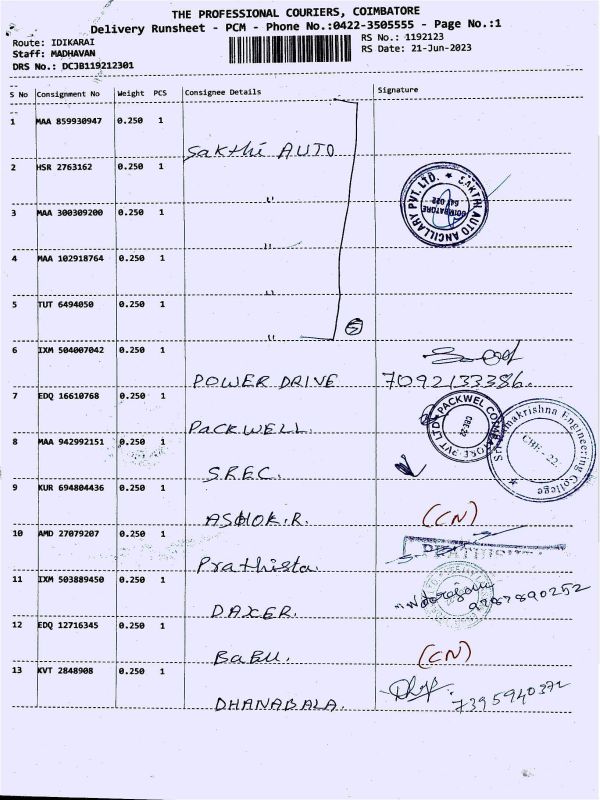 THE PROFESSIONAL COURIERS, COIMBATORE
Delivery Runsheet - PCM - Phone No.:0422-3505555 - Page No.:1
Route: IDIKARAI
Staff: MADHAVAN
DRS No.: DCJB119212301
RS No.: 1192123
RS Date: 21-Jun-2023
S No Consignment No Weight PCS Consignee Details Signature
1 MAA 859930947 0.250 1 Sakthi AUTO
2 HSR 2763162 0.250 1 "
SAKTHI AUTO ANCILLARY PVT. LTD.
COIMBATORE
641 022
3 MAA 300309200 0.250 1 "
4 MAA 102918764 0.250 1 "
5 TUT 6494050 0.250 1 "
5
6 IXM 504007042 0.250 1 POWER DRIVE 7092133386.
7 EDQ 16610768 0.250 1 PACKWELL.
PACKWEL COIMBATORE PVT LTD
CBE-22
8 MAA 942992151 0.250 1 SREC.
Sri Ramakrishna Engineering College
CBE - 22.
9 KUR 694804436 0.250 1 ASHOK.R. (CN)
10 AMD 27079207 0.250 1 Prathista.
11 IXM 503889450 0.250 1 DAXER. 9787890252
12 EDQ 12716345 0.250 1 BABU. (CN)
13 KVT 2848908 0.250 1 DHANABALA. 7395940372